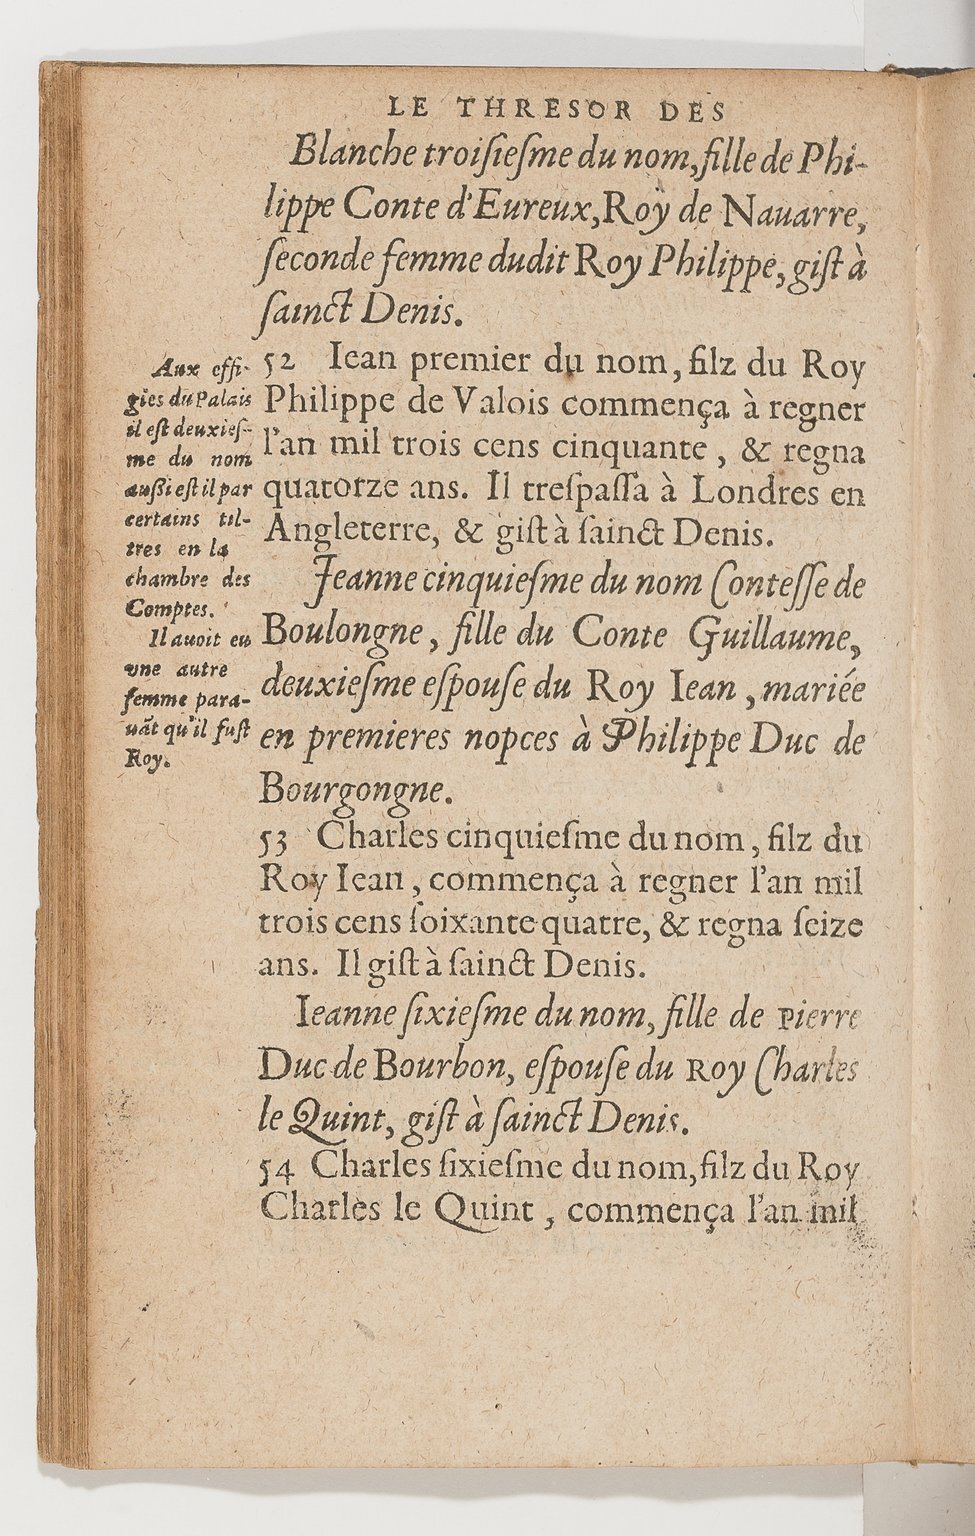 LE THRESOR DES
Blanche troiſieſme du nom, fille de Phi-
lippe Conte d'Eureux, Roy de Nauarre,
ſeconde femme dudit Roy Philippe, giſt à
ſainct Denis.
52 Iean premier du nom, filz du Roy
Philippe de Valois commença à regner
l'an mil trois cens cinquante, & regna
quatorze ans. Il treſpaſſa à Londres en
Angleterre, & giſt à ſainct Denis.
Jeanne cinquieſme du nom Conteſſe de
Boulongne, fille du Conte Guillaume,
deuxieſme eſpouſe du Roy Iean, mariée
en premieres nopces à Philippe Duc de
Bourgongne.
53 Charles cinquieſme du nom, filz du
Roy Iean, commença à regner l'an mil
trois cens ſoixante quatre, & regna ſeize
ans. Il giſt à ſainct Denis.
Ieanne ſixieſme du nom, fille de Pierre
Duc de Bourbon, eſpouſe du Roy Charles
le Quint, giſt à ſainct Denis.
54 Charles ſixieſme du nom, filz du Roy
Charles le Quint, commença l'an mil
Aux effi-
gies du Palais
il eſt deuxieſ-
me du nom
außi eſt il par
certains til-
tres en la
chambre des
Comptes.
Il auoit eu
vne autre
femme para-
uāt qu'il fuſt
Roy.